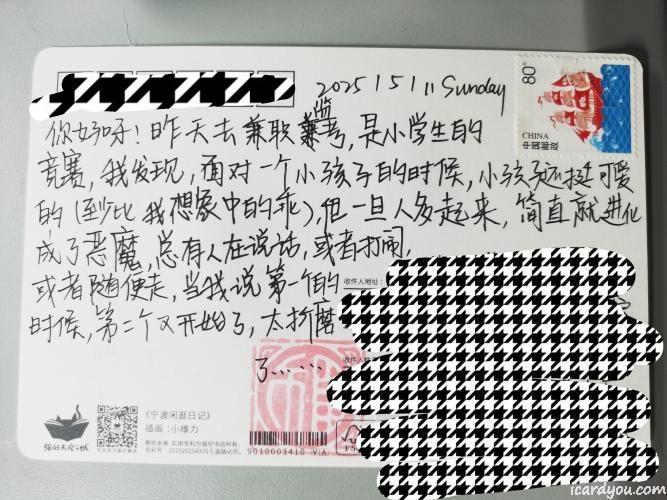 2025 / 5 / 11 Sunday
80
CHINA
中国邮政
你好呀！昨天去兼职监考，是小学生的
竞赛，我发现，面对一个小孩子的时候，小孩还挺可爱
的（至少比我想象中的乖），但一旦人多起来，简直就进化
成了恶魔，总有人在说话，或者打闹，
或者随便走，当我说第一个的
时候，第二个又开始了，太折磨
了……
收件人地址：
收件人
猫的天空之城
《宁波闲逛日记》
插画：小维力
9010003410 V/A
icardyou.com